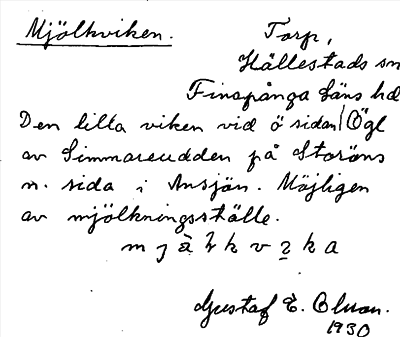 Mjölkviken. Torp,
Hällestads sn
Finspånga läns hd
Den lilla viken vid ö sidan Ögl
av Simmareudden på Storöns
n. sida i Ansjön. Möjligen
av mjölkningsställe.
Gustaf E.
1930